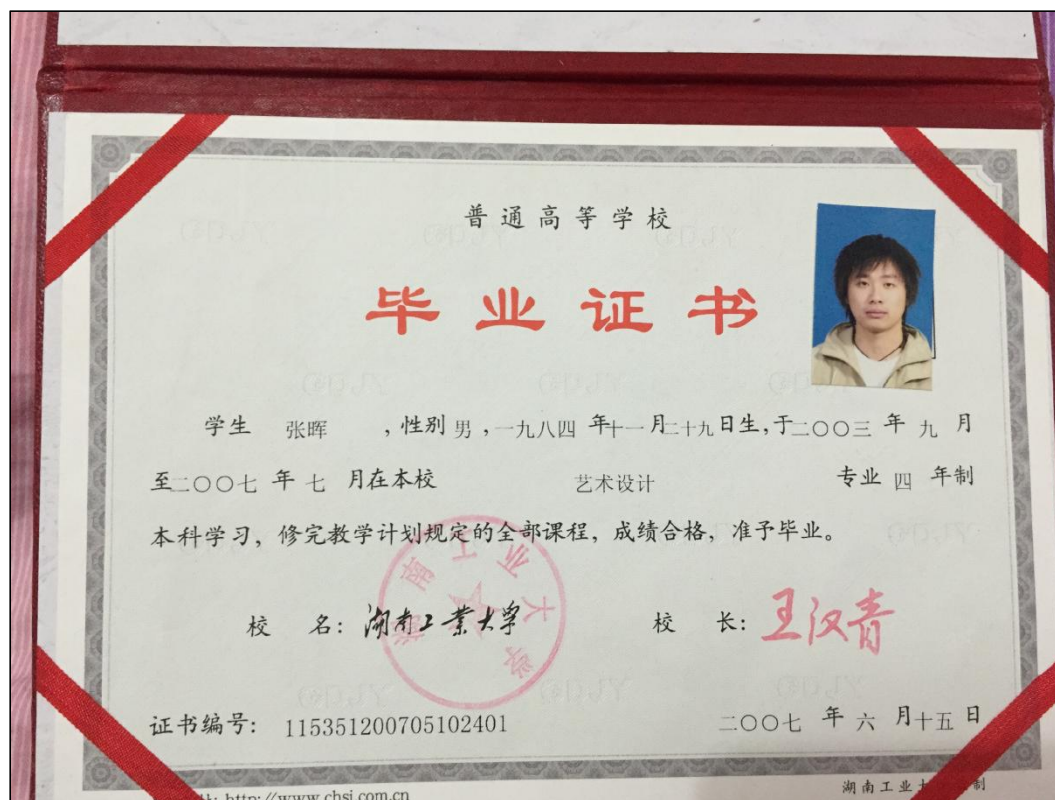 普通高等学校
毕业证书
学生 张晖 ，性别 男 ，一九八四 年十一月二十九日生，于二〇〇三 年 九 月
至二〇〇七 年 七 月在本校 艺术设计 专业 四 年制
本科学习，修完教学计划规定的全部课程，成绩合格，准予毕业。
校 名：湖南工業大學 校 长：王汉青
湖南工业大学
证书编号： 115351200705102401 二〇〇七 年 六 月十五日
http://www.chsi.com.cn 湖南工业大 制